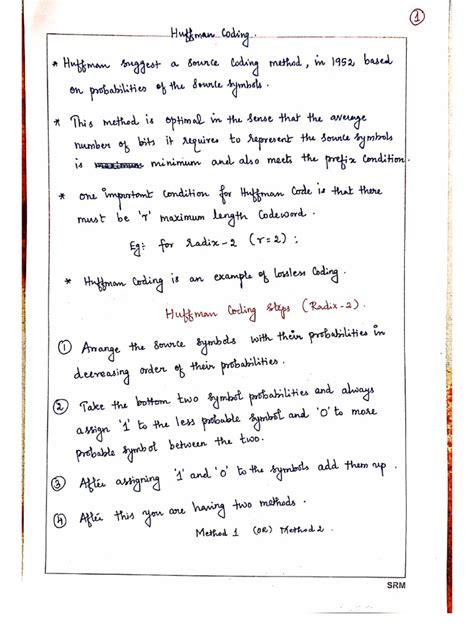 1
Huffman Coding.
* Huffman suggest a source coding method, in 1952 based
on probabilities of the source symbols.
* This method is optimal in the sense that the average
number of bits it requires to represent the source symbols
is minimum and also meets the prefix condition.
* one important condition for Huffman Code is that there
must be 'r' maximum length codeword.
Eg: for radix-2 (r=2):
* Huffman Coding is an example of lossless coding.
Huffman Coding Steps (Radix-2).
1 Arrange the source symbols with their probabilities in
decreasing order of their probabilities.
2 Take the bottom two symbol probabilities and always
assign '1' to the less probable symbol and '0' to more
probable symbol between the two.
3 After assigning '1' and '0' to the symbols add them up.
4 After this you are having two methods.
Method 1 (OR) Method 2.
SRM